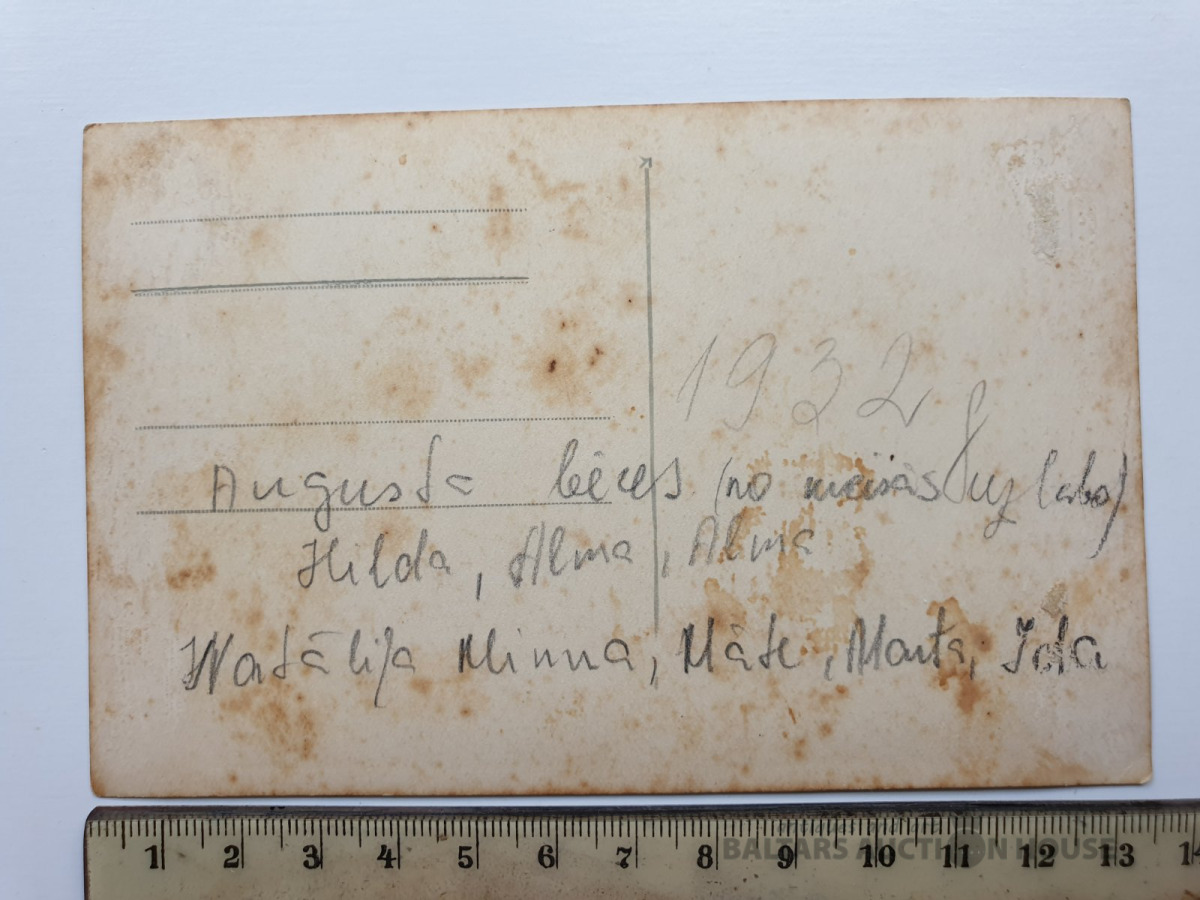 1932
Augusta bēres (no kreisās uz labo)
Hilda, Alma, Alma
Natālija Minna, Māte, Marta, Ida
1 2 3 4 5 6 7 8 9 10 11 12 13 14
BALTARS AUCTION HOUSE